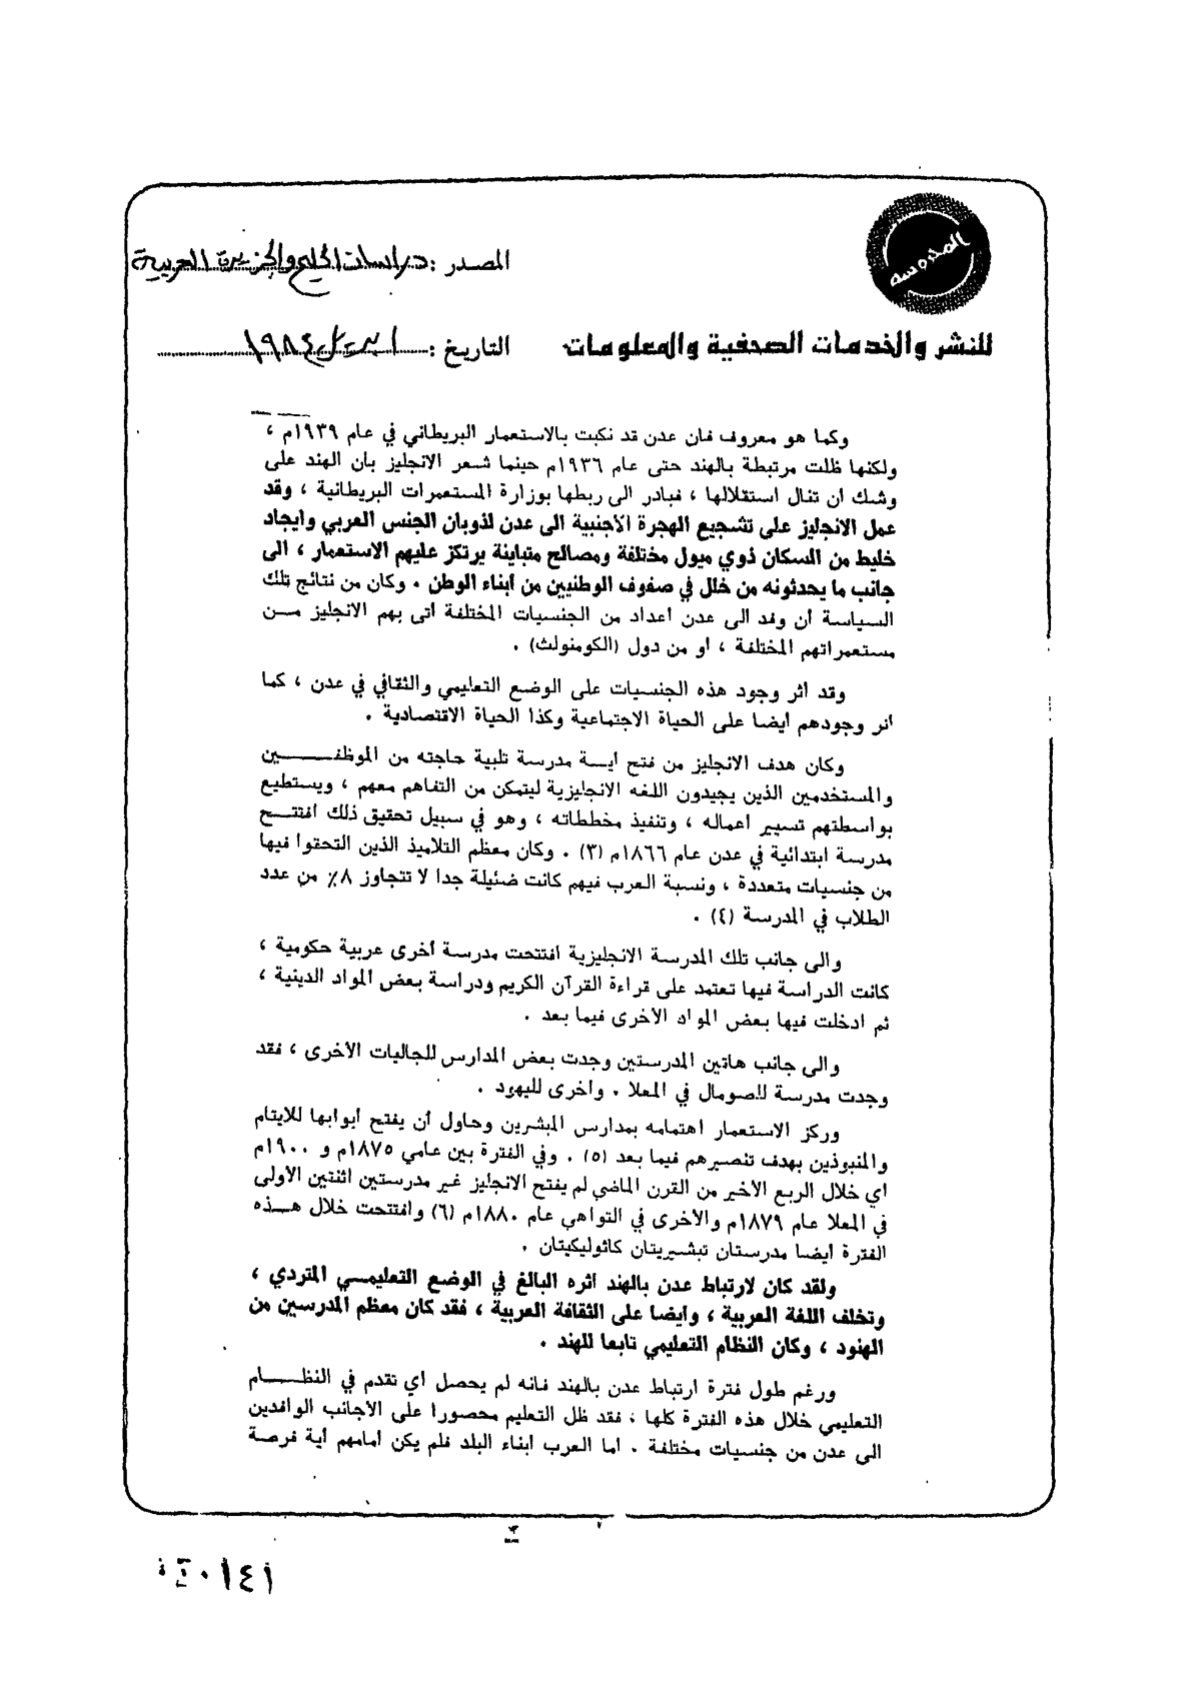 المحروسة
المصدر : دراسات الخليج والجزيرة العربية
للنشر والخدمات الصحفية والمعلومات
التاريخ : ابريل ١٩٨٤
وكما هو معروف فان عدن قد نكبت بالاستعمار البريطاني في عام ١٩٣٩م ،
ولكنها ظلت مرتبطة بالهند حتى عام ١٩٣٦م حينما شعر الانجليز بان الهند على
وشك ان تنال استقلالها ، فبادر الى ربطها بوزارة المستعمرات البريطانية ، وقد
عمل الانجليز على تشجيع الهجرة الأجنبية الى عدن لذوبان الجنس العربي وايجاد
خليط من السكان ذوي ميول مختلفة ومصالح متباينة يرتكز عليهم الاستعمار ، الى
جانب ما يحدثونه من خلل في صفوف الوطنيين من أبناء الوطن . وكان من نتائج تلك
السياسة أن وفد الى عدن أعداد من الجنسيات المختلفة أتى بهم الانجليز مــن
مستعمراتهم المختلفة ، او من دول (الكومنولث) .
وقد أثر وجود هذه الجنسيات على الوضع التعليمي والثقافي في عدن ، كما
اثر وجودهم أيضا على الحياة الاجتماعية وكذا الحياة الاقتصادية .
وكان هدف الانجليز من فتح أيــة مدرسة تلبية حاجته من الموظفـــــين
والمستخدمين الذين يجيدون اللغه الانجليزية ليتمكن من التفاهم معهم ، ويستطيع
بواسطتهم تسيير اعماله ، وتنفيذ مخططاته ، وهو في سبيل تحقيق ذلك افتتـــح
مدرسة ابتدائية في عدن عام ١٨٦٦م (٣) . وكان معظم التلاميذ الذين التحقوا فيها
من جنسيات متعددة ، ونسبة العرب فيهم كانت ضئيلة جدا لا تتجاوز ٨٪ من عدد
الطلاب في المدرسة (٤) .
والى جانب تلك المدرسة الانجليزية افتتحت مدرسة أخرى عربية حكومية ،
كانت الدراسة فيها تعتمد على قراءة القرآن الكريم ودراسة بعض المواد الدينية ،
ثم ادخلت فيها بعض المواد الأخرى فيما بعد .
والى جانب هاتين المدرستين وجدت بعض المدارس للجاليات الأخرى ، فقد
وجدت مدرسة للصومال في المعلا . وأخرى لليهود .
وركز الاستعمار اهتمامه بمدارس المبشرين وحاول أن يفتح أبوابها للأيتام
والمنبوذين بهدف تنصيرهم فيما بعد (٥) . وفي الفترة بين عامي ١٨٧٥م و ١٩٠٠م
اي خلال الربع الأخير من القرن الماضي لم يفتح الانجليز غير مدرستين اثنتين الأولى
في المعلا عام ١٨٧٩م والأخرى في التواهي عام ١٨٨٠م (٦) وافتتحت خلال هــذه
الفترة أيضا مدرستان تبشيريتان كاثوليكيتان .
ولقد كان لارتباط عدن بالهند أثره البالغ في الوضع التعليمــي المتردي ،
وتخلف اللغة العربية ، وأيضا على الثقافة العربية ، فقد كان معظم المدرسين من
الهنود ، وكان النظام التعليمي تابعا للهند .
ورغم طول فترة ارتباط عدن بالهند فانه لم يحصل اي تقدم في النظـــام
التعليمي خلال هذه الفترة كلها ، فقد ظل التعليم محصورا على الأجانب الوافدين
الى عدن من جنسيات مختلفة . اما العرب أبناء البلد فلم يكن أمامهم أية فرصة